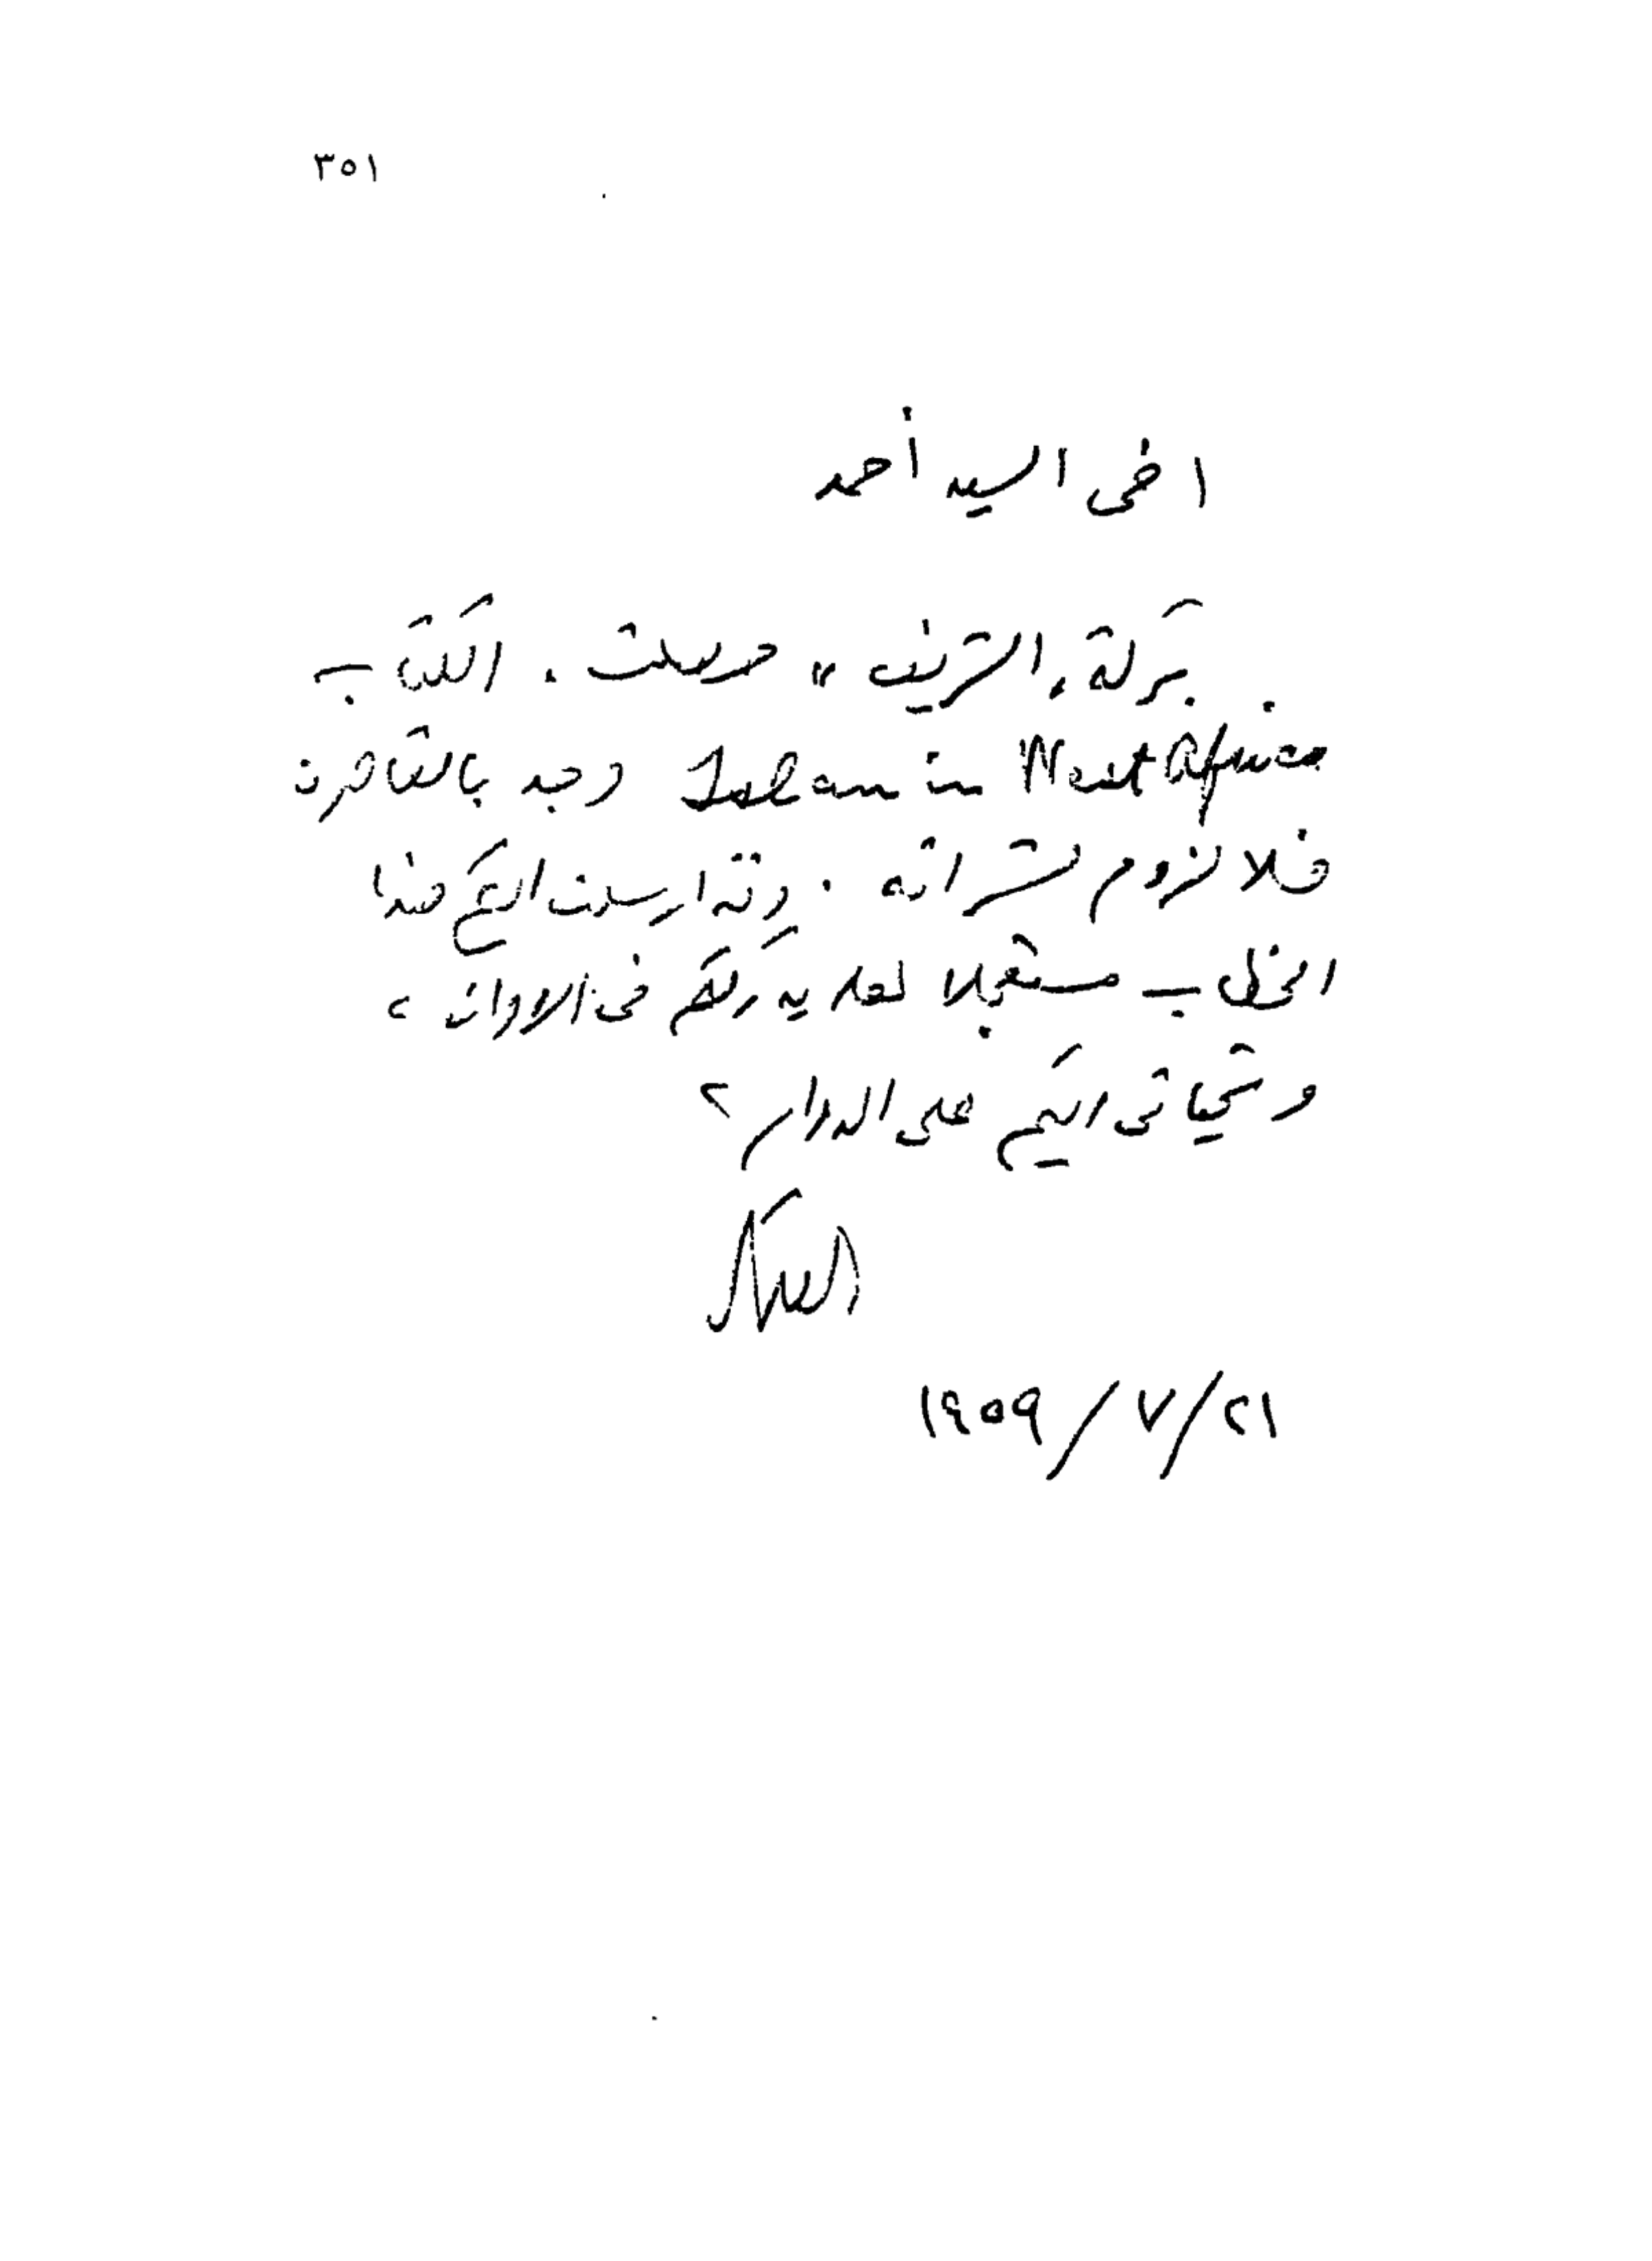 ٣٥١
اخى السيد أحمد
بركة "الشريف" وصلت . الكتاب
Islam in West Africa وجد بالقاهرة
فلا لزوم لشرائه . وقد ارسلت اليكم هذا
الخطاب مستعجلا لعله يدرككم فى الاوان ،
وتحياتى اليكم على الدوام
٢١/٧/١٩٥٩